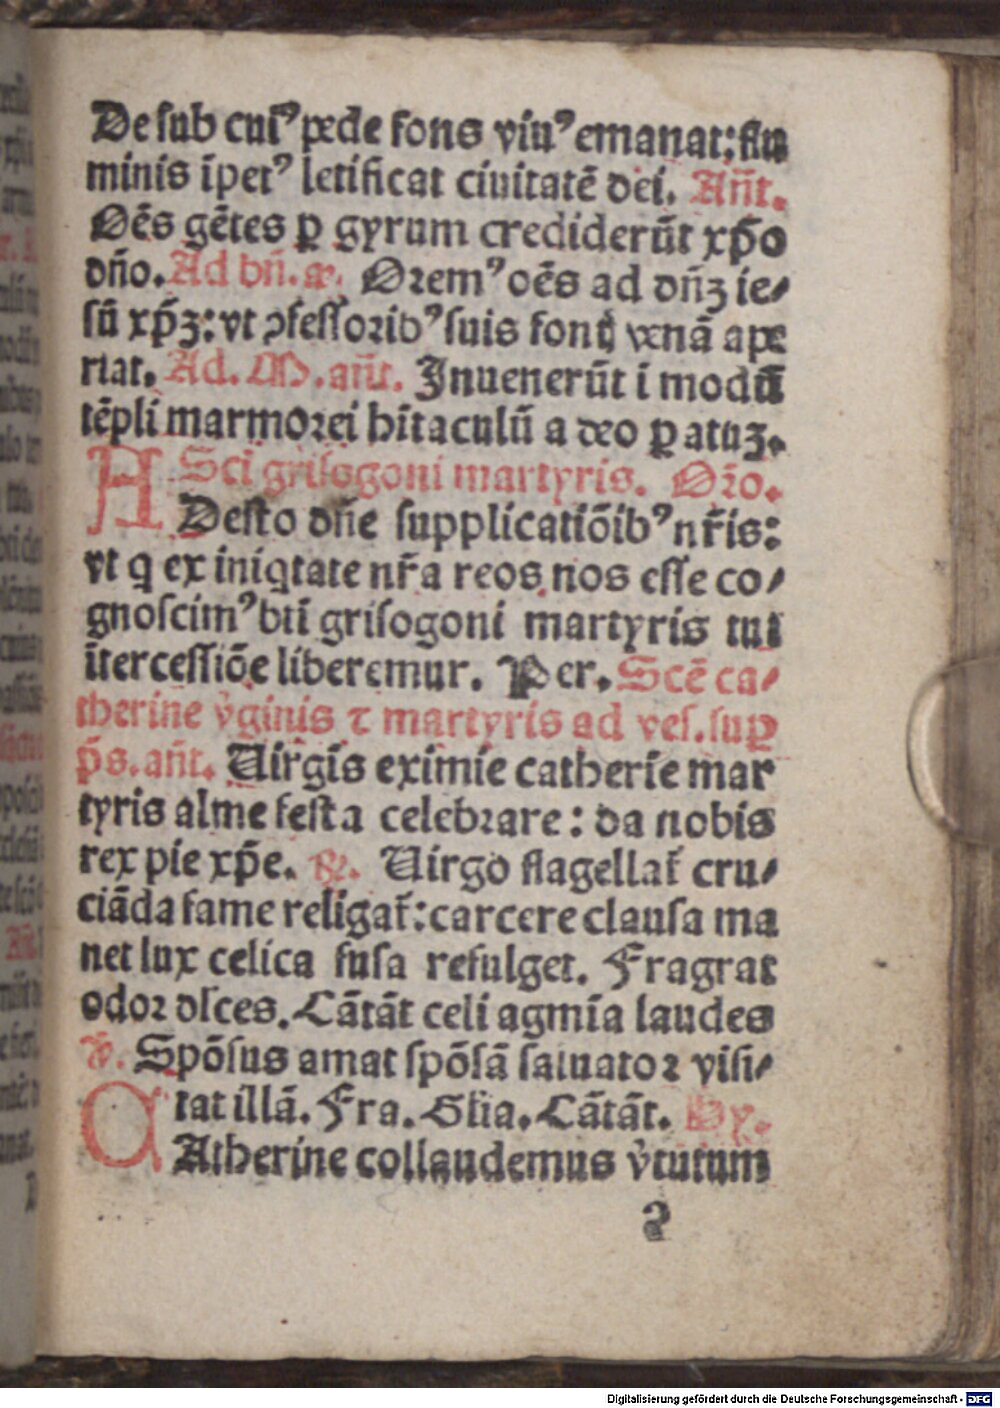 De ſub cuiꝰ pede fons viuꝰ emanat: flu
minis ip̄etꝰ letificat ciuitatē dei. Añt.
Oēs gētes ꝑ gyrum crediderūt xp̄o
dño. Ad bñ. a. Oꝛemꝰ oēs ad dñꝫ ie⸗
ſū xp̄ꝫ: vt ꝯfeſſoꝛibꝰ ſuis fontꝭ venā ape
riat. Ad. M. añt. Inuenerūt ī modū
tēpli marmoꝛei hītaculū a deo ꝑatuꝫ.
Scī griſogoni martyris. Oꝛ̄o.
ADeſto dñe ſupplicatiōibꝰ nr̄is:
vt q ex iniqtate nr̄a reos nos eſſe co⸗
gnoſcimꝰ btī griſogoni martyris tui
īterceſſiōe liberemur. Per. Scē ca⸗
therine v̓ginis ⁊ martyris ad veſ. ſuꝑ
p̄s. añt. Uirgīs eximie catherīe mar
tyris alme feſta celebꝛare: da nobis
rex pie xp̄e. ℟. Uirgo flagellat᷑ cru⸗
ciāda fame religat᷑: carcere clauſa ma
net lux celica fuſa refulget. Fragrat
odoꝛ dlces. Cātāt celi agmīa laudes
℣. Spōſus amat ſpōſā ſaluatoꝛ viſi⸗
tat illā. Fra. Glīa. Cātāt. Hy.
CAtherine collaudemus v̓tutum
2
Digitalisierung gefördert durch die Deutsche Forschungsgemeinschaft - DFG